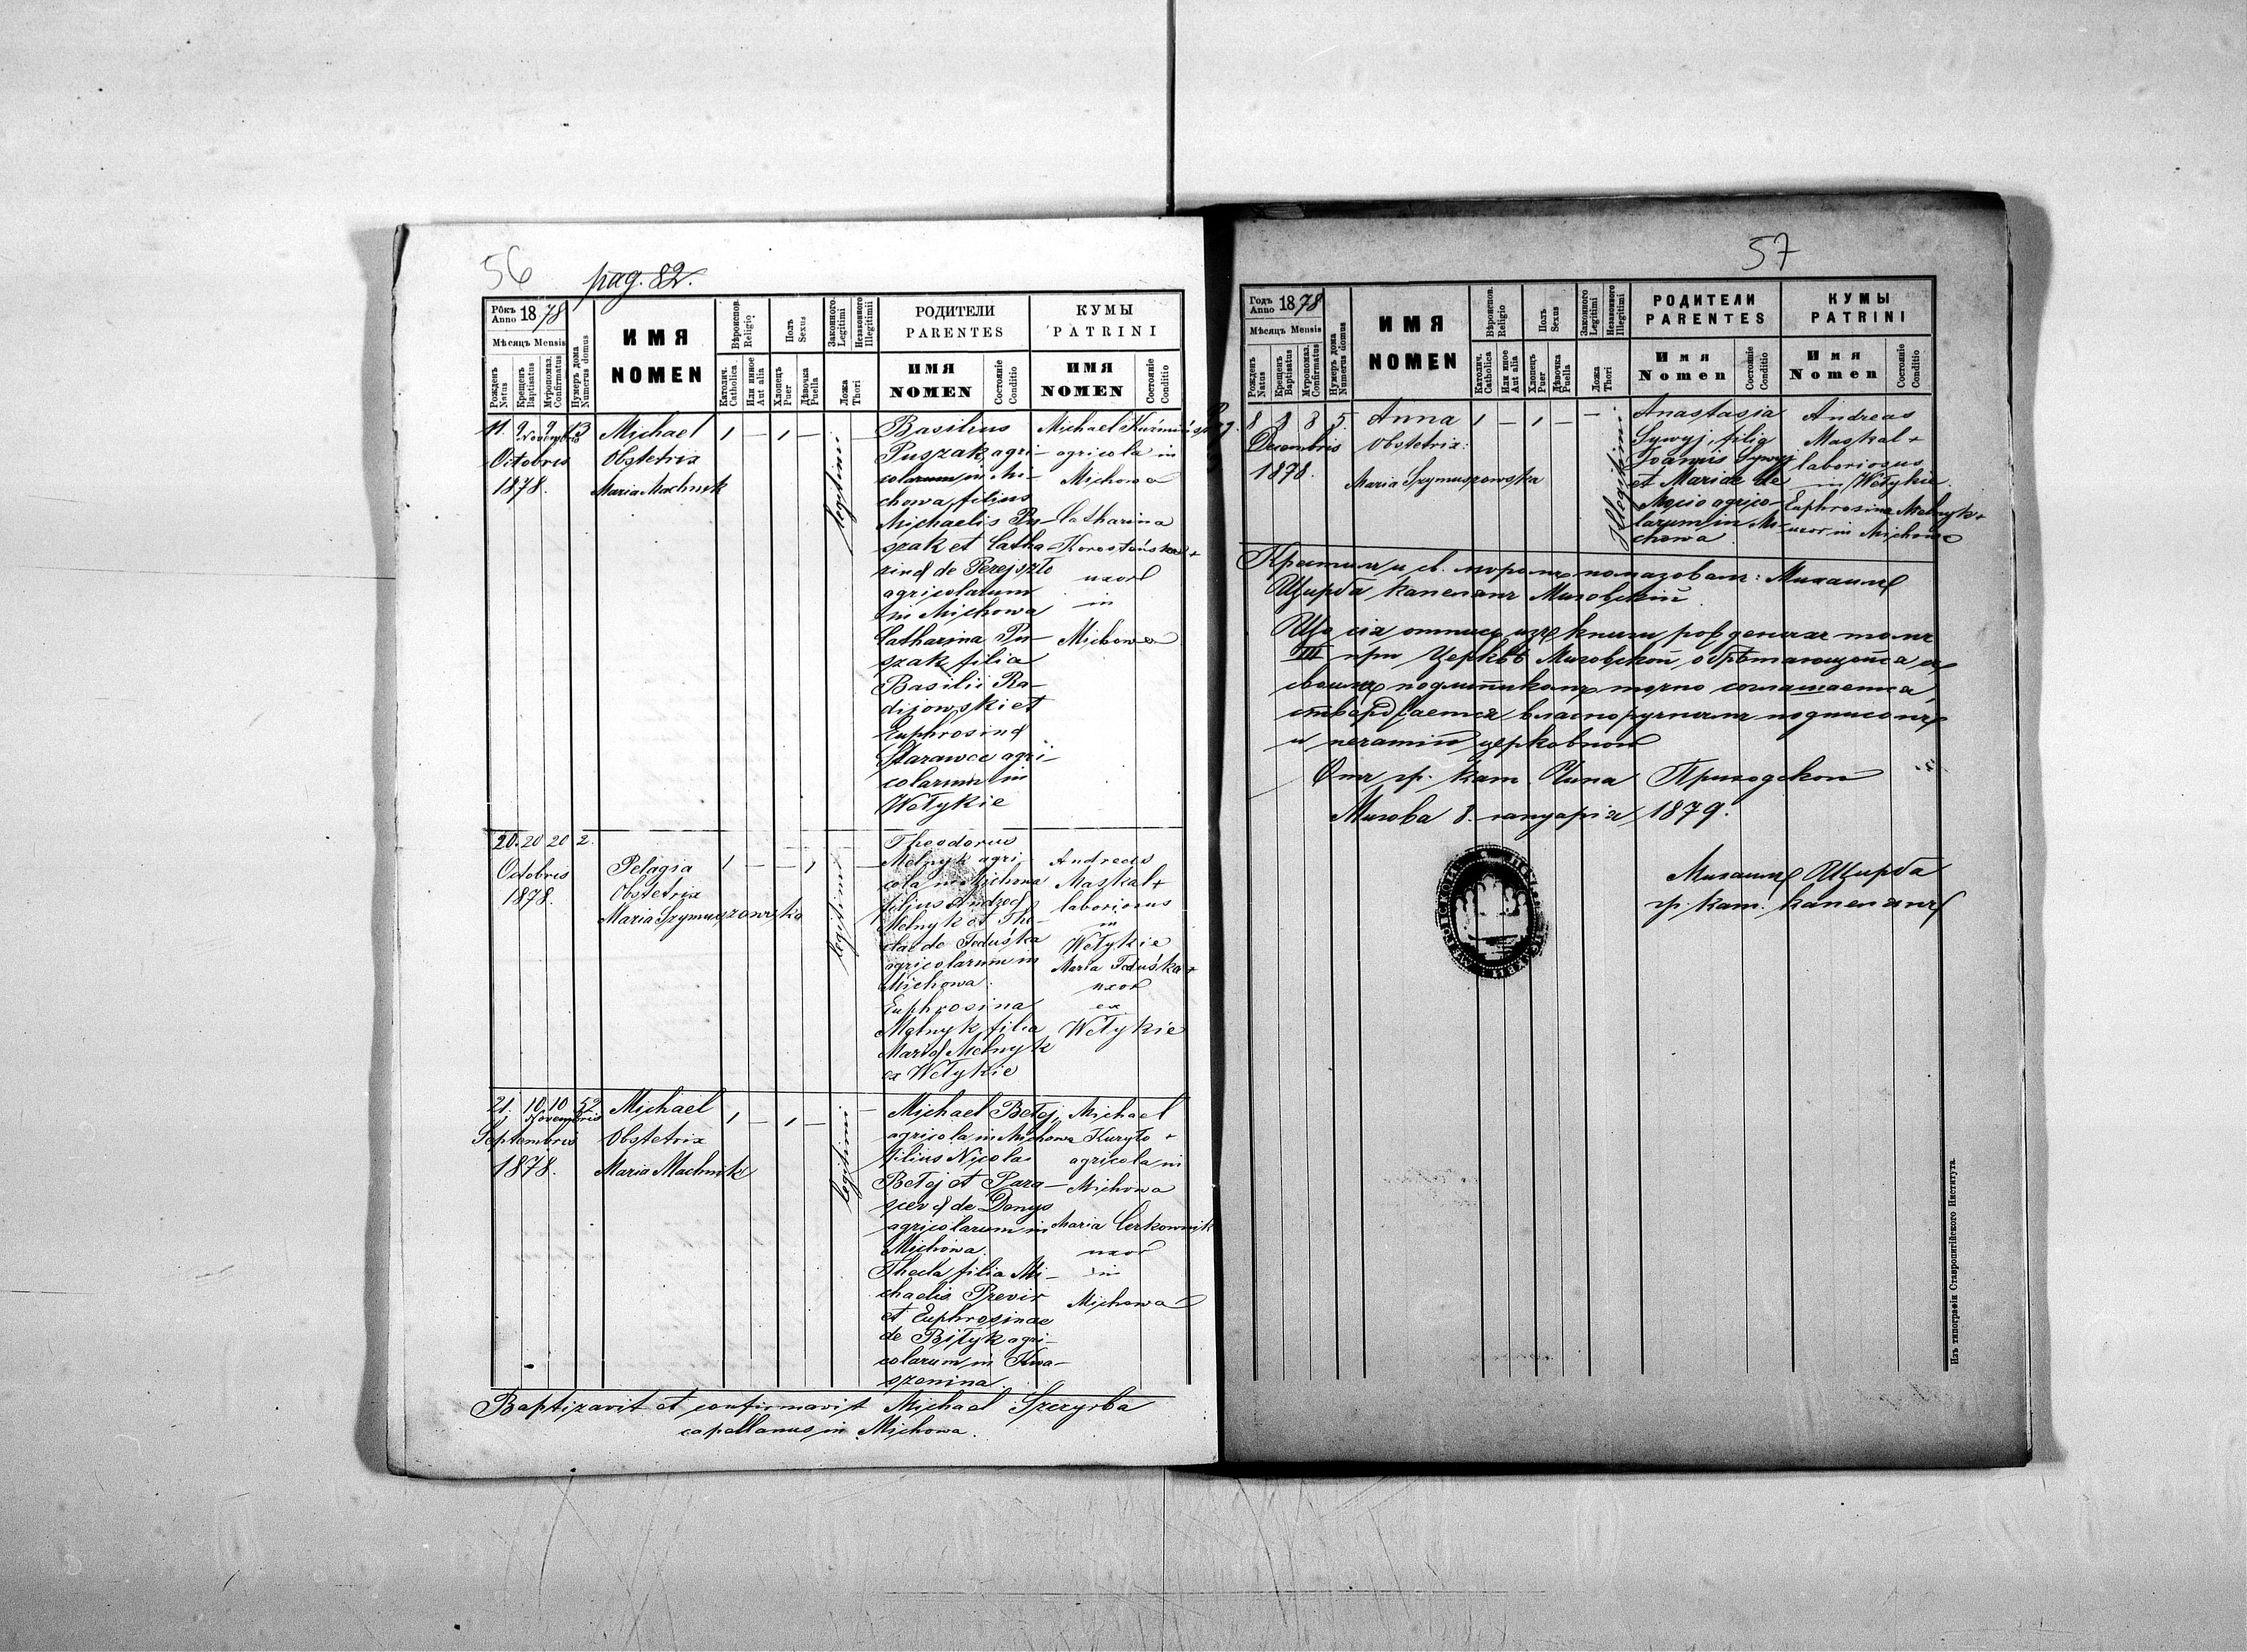 56
pag. 82.
Рôкъ Anno 1878
Мѣсяцъ Mensis
Рожденъ Natus
Крещенъ Baptisatus
Мѵропомаз. Confirmatus
Нумеръ дома Numerus domus
ИМЯ
NOMEN
Вѣроиспов. Religio
Католич. Catholica
Или инное Aut alia
Полъ Sexus
Хлопецъ Puer
Дѣвочка Puella
Законного Legitimi
Незаконного Illegitimii
Ложа Thori
РОДИТЕЛИ
PARENTES
ИМЯ
NOMEN
Состояніе Conditio
КУМЫ
PATRINI
ИМЯ
NOMEN
Состояніе Conditio
11. 9 9 13
Novembris
Octobris
1878.
Michael
Obstetrix
Maria Machnik
1 — 1 —
legitimi
Basilius
Puszak agri-
colarum in Mi-
chowa filius
Michaelis Pu-
szak et Catha-
rinæ de Perejszło
agricolarum
in Michowa
Catharina Pu-
szak filia
Basilii Ra-
dijowski et
Euphrosinæ
Starawce agri-
colarum in
Wełykie
Michael
agricola in
Michowa
Catharina
uxor
in
Michowa
20. 20 20 2.
Octobris
1878.
Pelagia
Obstetrix
Maria Szymuszowska
1 — — 1
legitimi
Theodorus
Melnyk agri-
cola in Michowa
filius Andreæ
Melnyk et The-
clae de Feduśka
agricolarum in
Michowa.
Euphrosina
Melnyk filia
Mariæ Melnyk
ex Wełykie
Andreas
Maskal +
laboriosus
in
Wełykie
Maria Feduśka +
uxor
ex
Wełykie
21. 10 10 52
Novembris
Septembris
1878.
Michael
Obstetrix
Maria Machnik
1 — 1 —
legitimi
Michael Bełej,
agricola in Michowa
filius Nicolai
Bełej et Para-
scevæ de Denys
agricolarum in
Michowa.
Thecla filia Mi-
chaelis Previr
et Euphrosinae
de Biłyk agri-
colarum in Kwa-
szenina.
Michael
Kuryło +
agricola in
Michowa
Maria Cerkownik
uxor
in
Michowa
Baptizavit et confirmavit Michael Szczyrba
capellanus in Michowa.
57
Годъ Anno 1878
Мѣсяцъ Mensis
Рожденъ Natus
Крещенъ Baptisatus
Мѵропомаз. Confirmatus
Нумеръ дома Numerus domus
ИМЯ
NOMEN
Вѣроиспов. Religio
Католич. Catholica
Или иное Aut alia
Полъ Sexus
Хлопецъ Puer
Дѣвочка Puella
Законного Legitimi
Незаконного Illegitimi
Ложа Thori
РОДИТЕЛИ
PARENTES
Имя
Nomen
Состояніе Conditio
КУМЫ
PATRINI
Имя
Nomen
Состояніе Conditio
8 8 8 5.
Decembris
1878.
Anna
Obstetrix:
Maria Szymuszowska
1 — 1 —
Illegitimi
Anastasia
Sywyj, filia
Joannis Sywyj
et Mariae de
Mocio agrico-
larum in Mi-
chowa
Andreas
Maskal +
laboriosus
in Wełykie.
Euphrosina Melnyk +
uxor in Michowa
Крестилъ и св. мѵромъ помазовалъ: Михаилъ
Щирба капеланъ Миховскій.
Що сія отпись изъ книги рожденыхъ томъ
III при Церквѣ Миховской обрѣтающойся съ
своимъ подлинникомъ точно соглашается,
стверджается власноручнымъ подписомъ
и печатію церковною
Отъ гр. кат. Чина Приходского
Михова 8. януарія 1879.
Михаилъ Щирба
гр. кат. капеланъ
Изъ типографіи Ставропигійского Института.